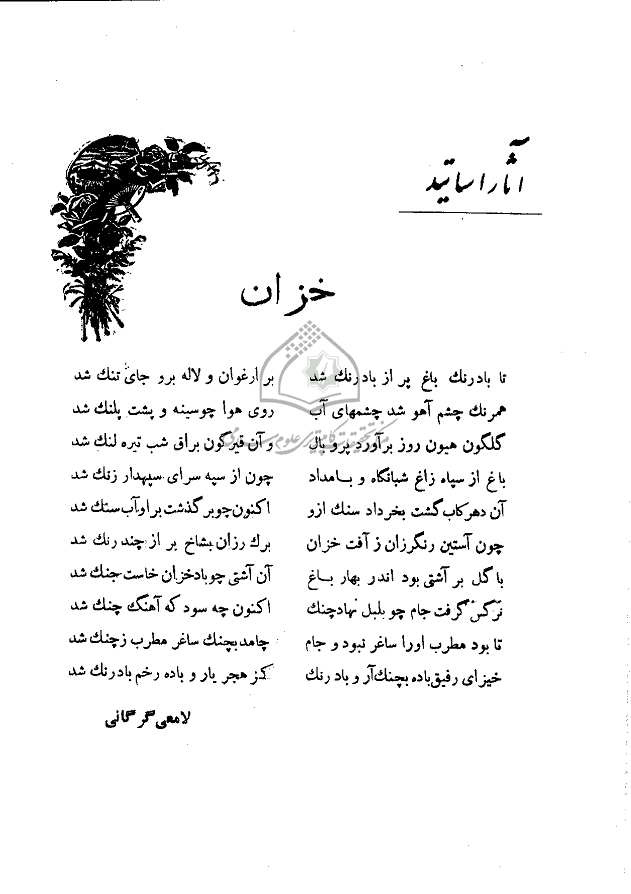 آثار اساتید
خزان
تا بادرنك باغ پر از بادرنك شد بر ارغوان و لاله برو جای تنك شد
همرنك چشم آهو شد چشمهای آب روی هوا چو سینه و پشت پلنك شد
گلگون هیون روز برآورد پر و بال و آن قیرگون براق شب تیره لنك شد
باغ از سپاه زاغ شبانگاه و بامداد چون از سپه سرای سپهدار زنك شد
آن دهر کاب گشت بخرداد سنك ازو اکنون چو بر گذشت بر او آب سنك شد
چون آستین رنگرزان ز آفت خزان برك رزان بشاخ بر از چند رنك شد
با گل بر آشتی بود اندر بهار باغ آن آشتی چو باد خزان خاست جنك شد
نرگس گرفت جام چو بلبل نهاد چنك اکنون چه سود که آهنگ چنك شد
تا بود مطرب اورا ساغر نبود و جام چامد بچنك ساغر مطرب ز چنك شد
خیز ای رفیق باده بچنك آر و بادرنك کز هجر یار و باده رخم بادرنك شد
لامعی گرگانی